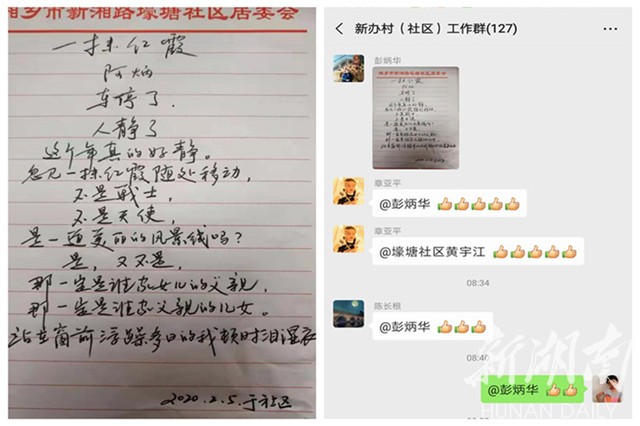 湘乡市新湘路壕塘社区居委会
一抹红霞
阿炳
车停了.
人静了
这个年真的好静。
忽见一抹红霞随处移动,
不是战士,
不是天使,
是一道美丽的风景线吗?
是,又不是,
那一定是谁家女儿的父亲,
那一定是谁家父亲的儿女。
站在窗前浮躁多日的我顿时泪湿衣
2020.2.5.于社区
新办村(社区)工作群(127)
彭炳华
章亚平
@彭炳华
章亚平
@壕塘社区黄宇江
08:34
陈长根
@彭炳华
08:40
@彭炳华
新湖南
HUNAN DAILY